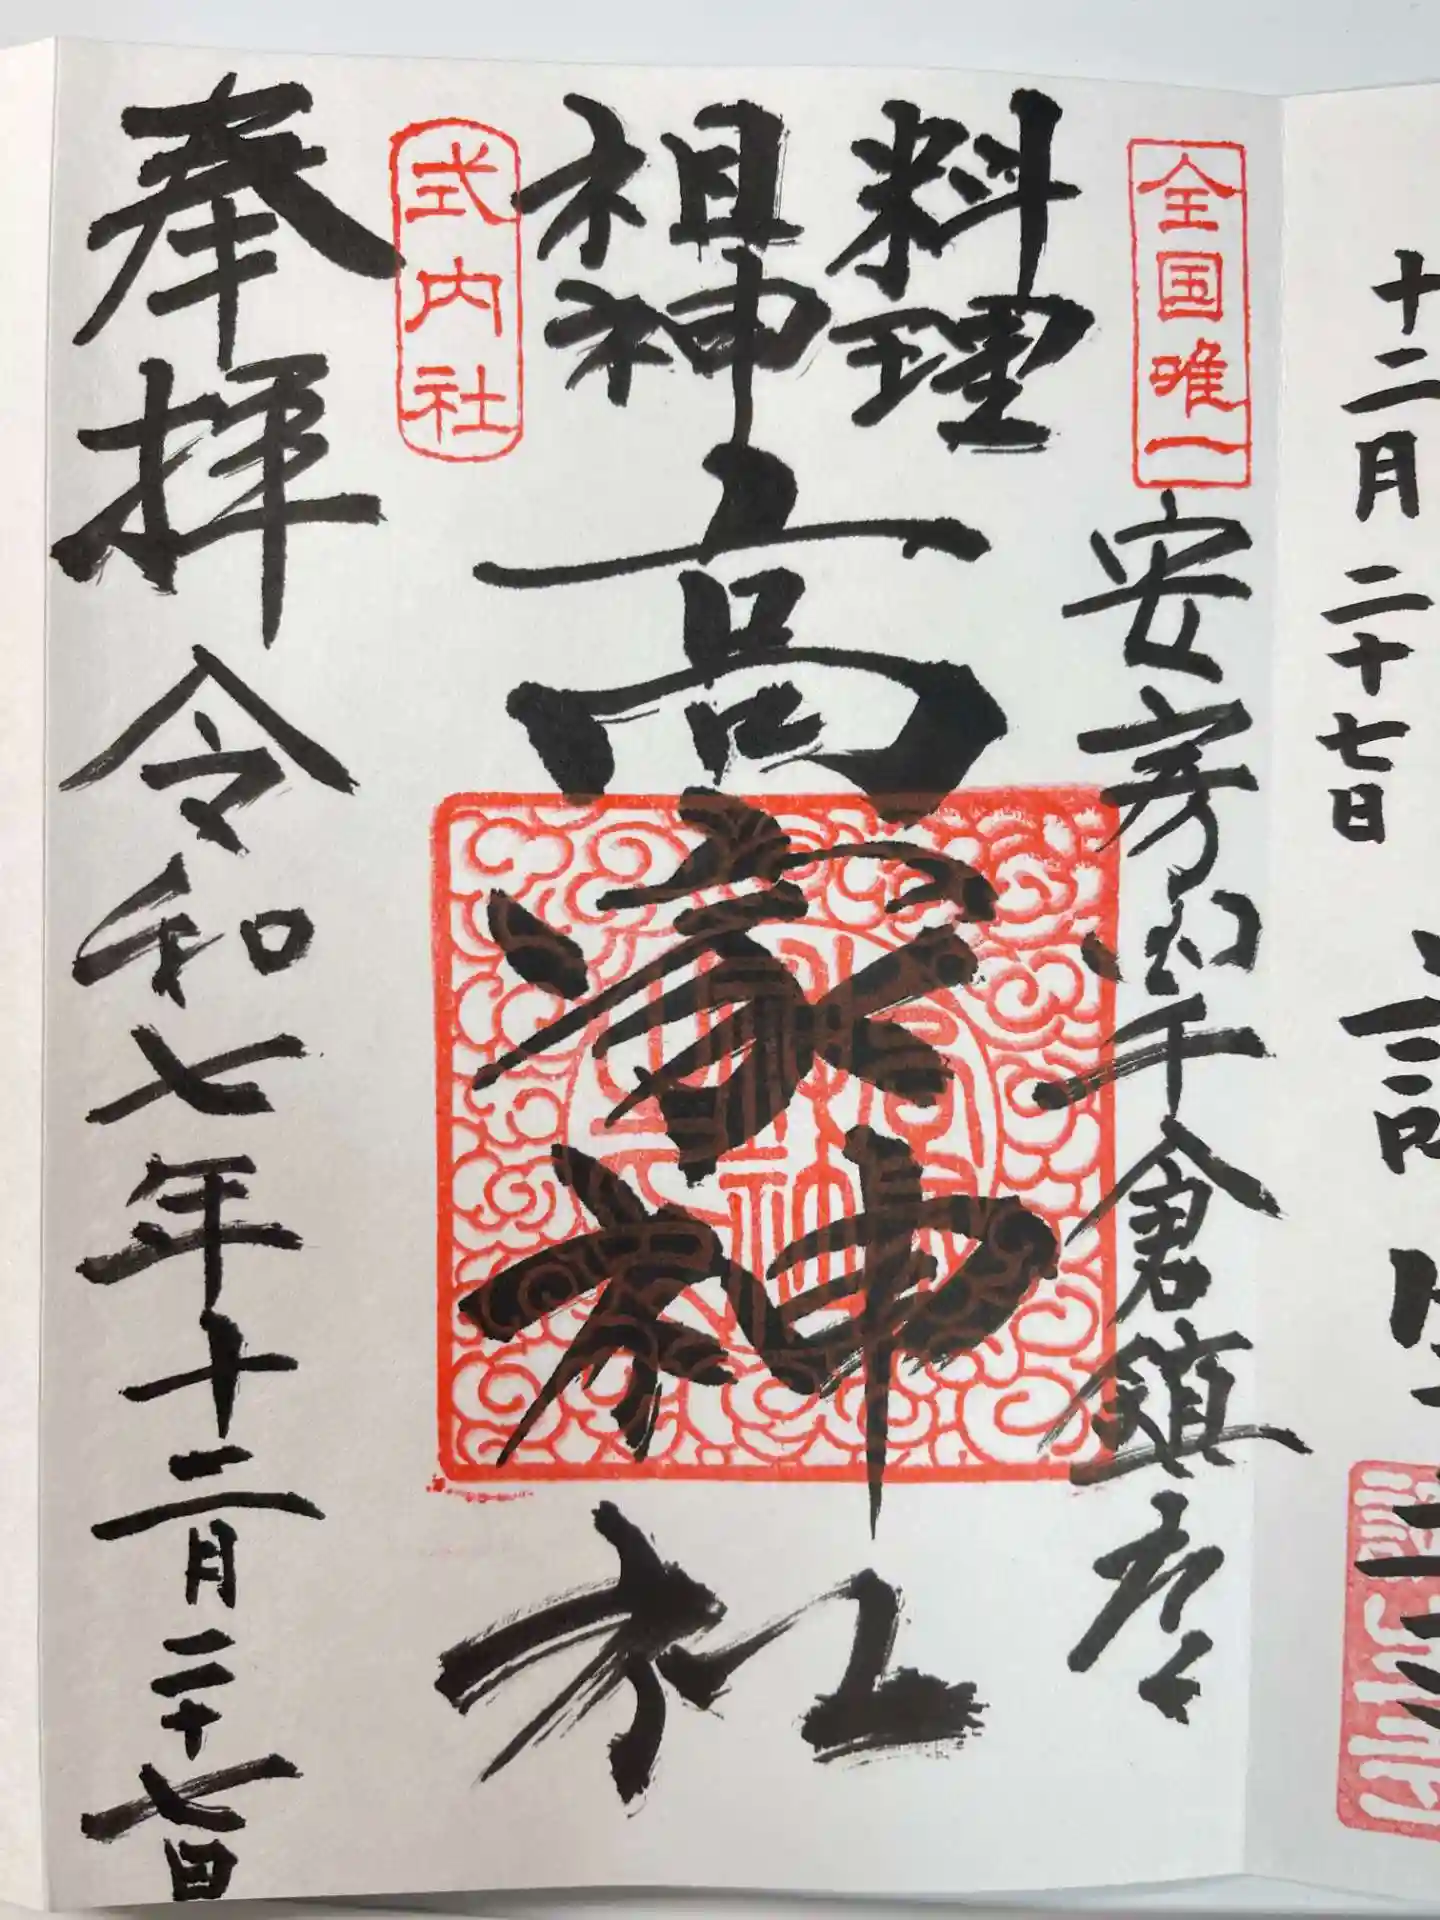 十二月二十七日
全国唯一
安房国千倉鎮座
料理
祖神
高家神社
式内社
奉拝 令和七年十二月二十七日